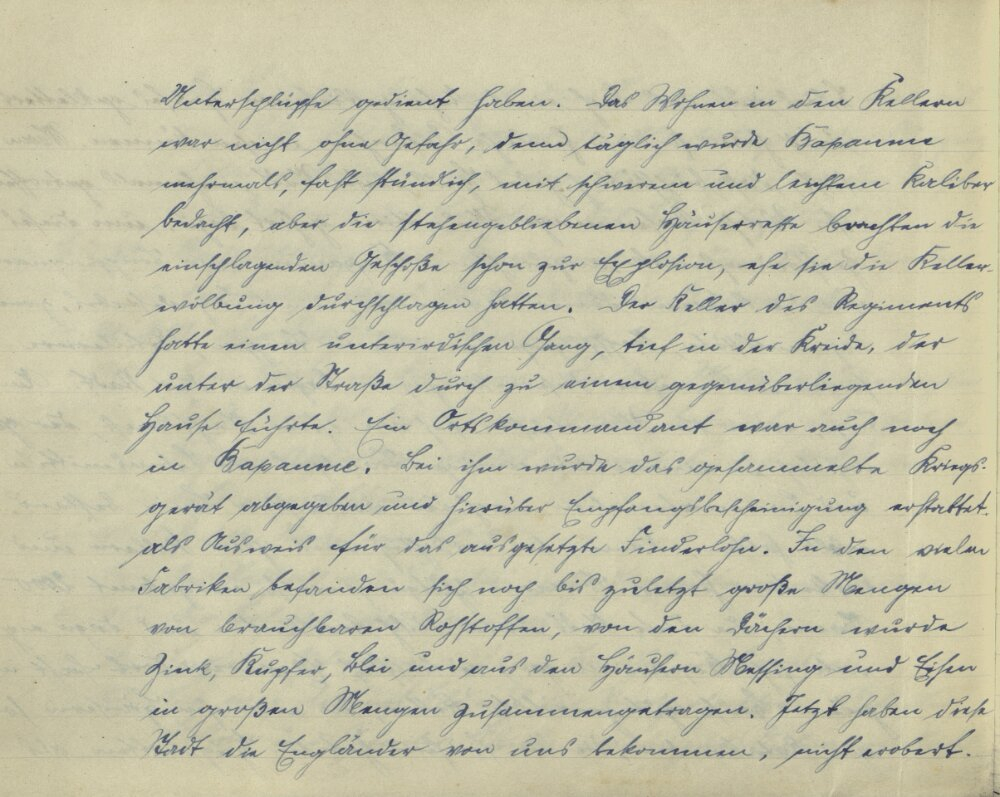 Unterschlüpfe gedient haben. Das Wohnen in den Kellern
war nicht ohne Gefahr, denn täglich wurde Bapaume
mehrmals, fast stündlich, mit schwerem und leichtem Kaliber
bedacht, aber die stehengebliebenen Häuserreste brachten die
einschlagenden Geschoße schon zur Explosion, ehe sie die Keller-
wölbung durchschlagen hatten. Der Keller des Regiments
hatte einen unterirdischen Gang, tief in der Kreide, der
unter der Straße durch zu einem gegenüberliegenden
Hause führte. Ein Ortskommandant war auch noch
in Bapaume. Bei ihm wurde das gesammelte Kriegs-
gerät abgegeben und hierüber Empfangsbescheinigung erstattet
als Ausweis für das ausgesetzte Finderlohn. In den vielen
Fabriken befanden sich noch bis zuletzt große Mengen
von brauchbaren Rohstoffen, von den Dächern wurde
Zink, Kupfer, Blei und aus den Häusern Messing und Eisen
in großen Mengen zusammengetragen. Jetzt haben diese
Stadt die Engländer von uns bekommen, nicht erobert.